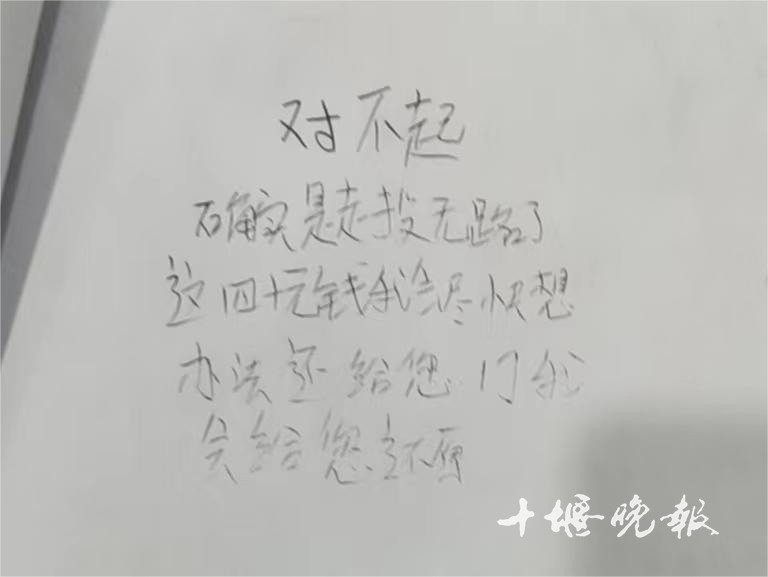 对不起
确实是走投无路了
这四十元钱我会尽快想
办法还给您 门我
会给您还原
十堰晚報